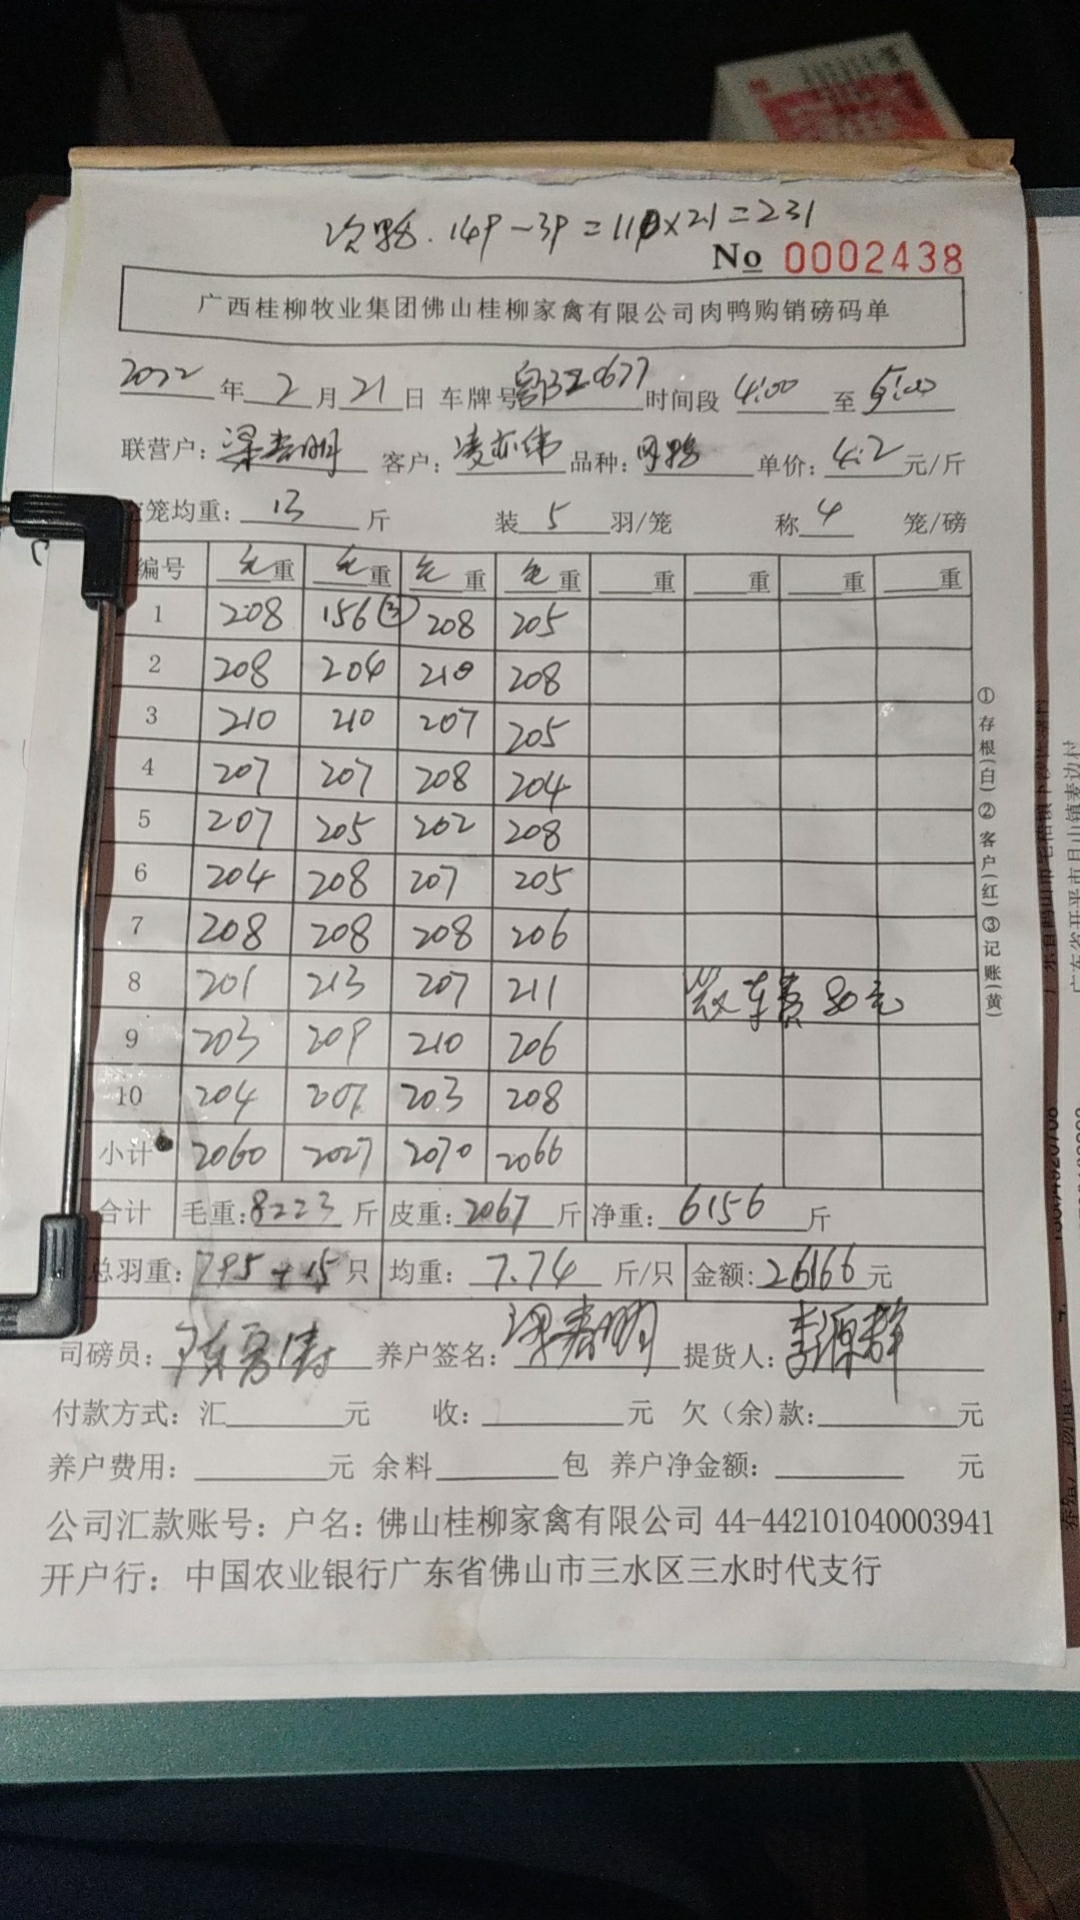 149-39=110×21=231
No 0002438
广西桂柳牧业集团佛山桂柳家禽有限公司肉鸭购销磅码单
2022年2月21日 车牌号 时间段 4:00 至 5:00
联营户: 客户:凌亦伟 品种: 单价:4.2元/斤
笼均重:13斤 装5羽/笼 称4笼/磅
编号 毛重 毛重 毛重 毛重 重 重 重 重
1 208 156③ 208 205
2 208 204 210 208
3 210 210 207 205
4 207 207 208 204
5 207 205 202 208
6 204 208 207 205
7 208 208 208 206
8 201 213 207 211 车费80元
9 203 209 210 206
10 204 207 203 208
小计 2060 2027 2070 2066
合计 毛重:8223斤 皮重:2067斤 净重:6156斤
总羽重:795+15只 均重:7.74斤/只 金额:26166元
司磅员: 养户签名: 提货人:李源群
付款方式:汇 元 收: 元 欠(余)款: 元
养户费用: 元 余料 包 养户净金额: 元
公司汇款账号:户名:佛山桂柳家禽有限公司 44-442101040003941
开户行:中国农业银行广东省佛山市三水区三水时代支行
①存根(白)②客户(红)③记账(黄)